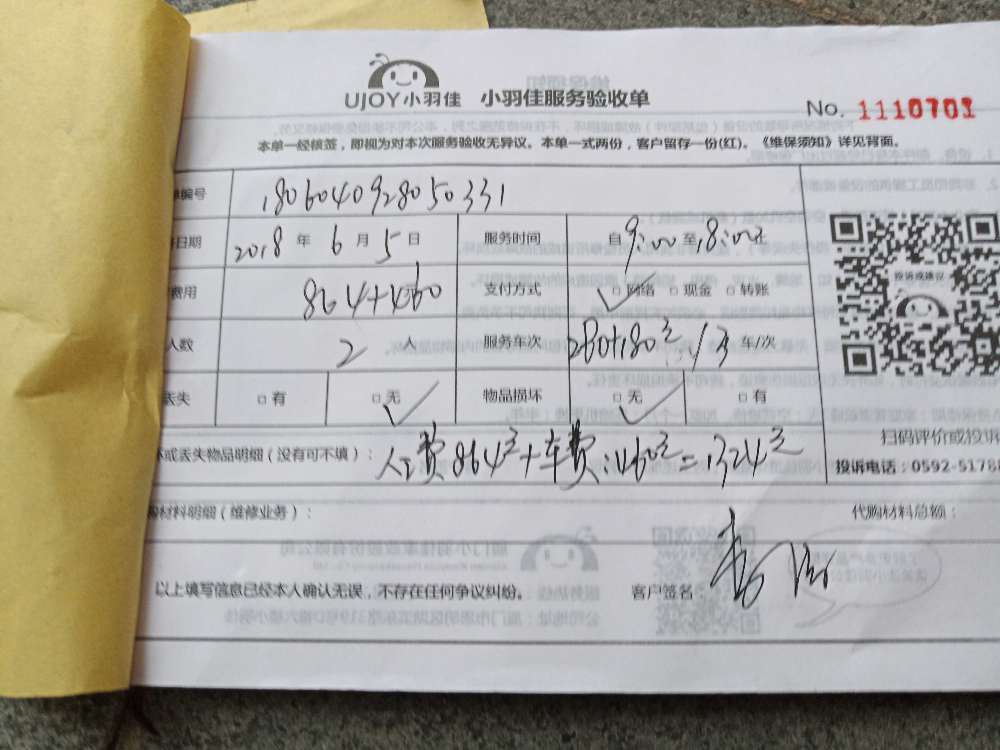 UJOY小羽佳 小羽佳服务验收单
No. 1110701
本单一经核签，即视为对本次服务验收无异议。本单一式两份，客户留存一份(红)。《维保须知》详见背面。
单编号 1806040928050331
日期 2018 年 6 月 5 日 服务时间 自 9:00 至 18:00 止
费用 864+460 支付方式 □网络 □现金 □转账
人数 2 人 服务车次 280+180 3 车/次
丢失 □有 □无 物品损坏 □无 □有
投诉或建议
扫码评价或投诉
坏或丢失物品明细（没有可不填）： 人工费864元+车费:460元=1324元
投诉电话：0592-5178
购材料明细（维修业务）： 代购材料总额：
以上填写信息已经本人确认无误，不存在任何争议纠纷。 客户签名：